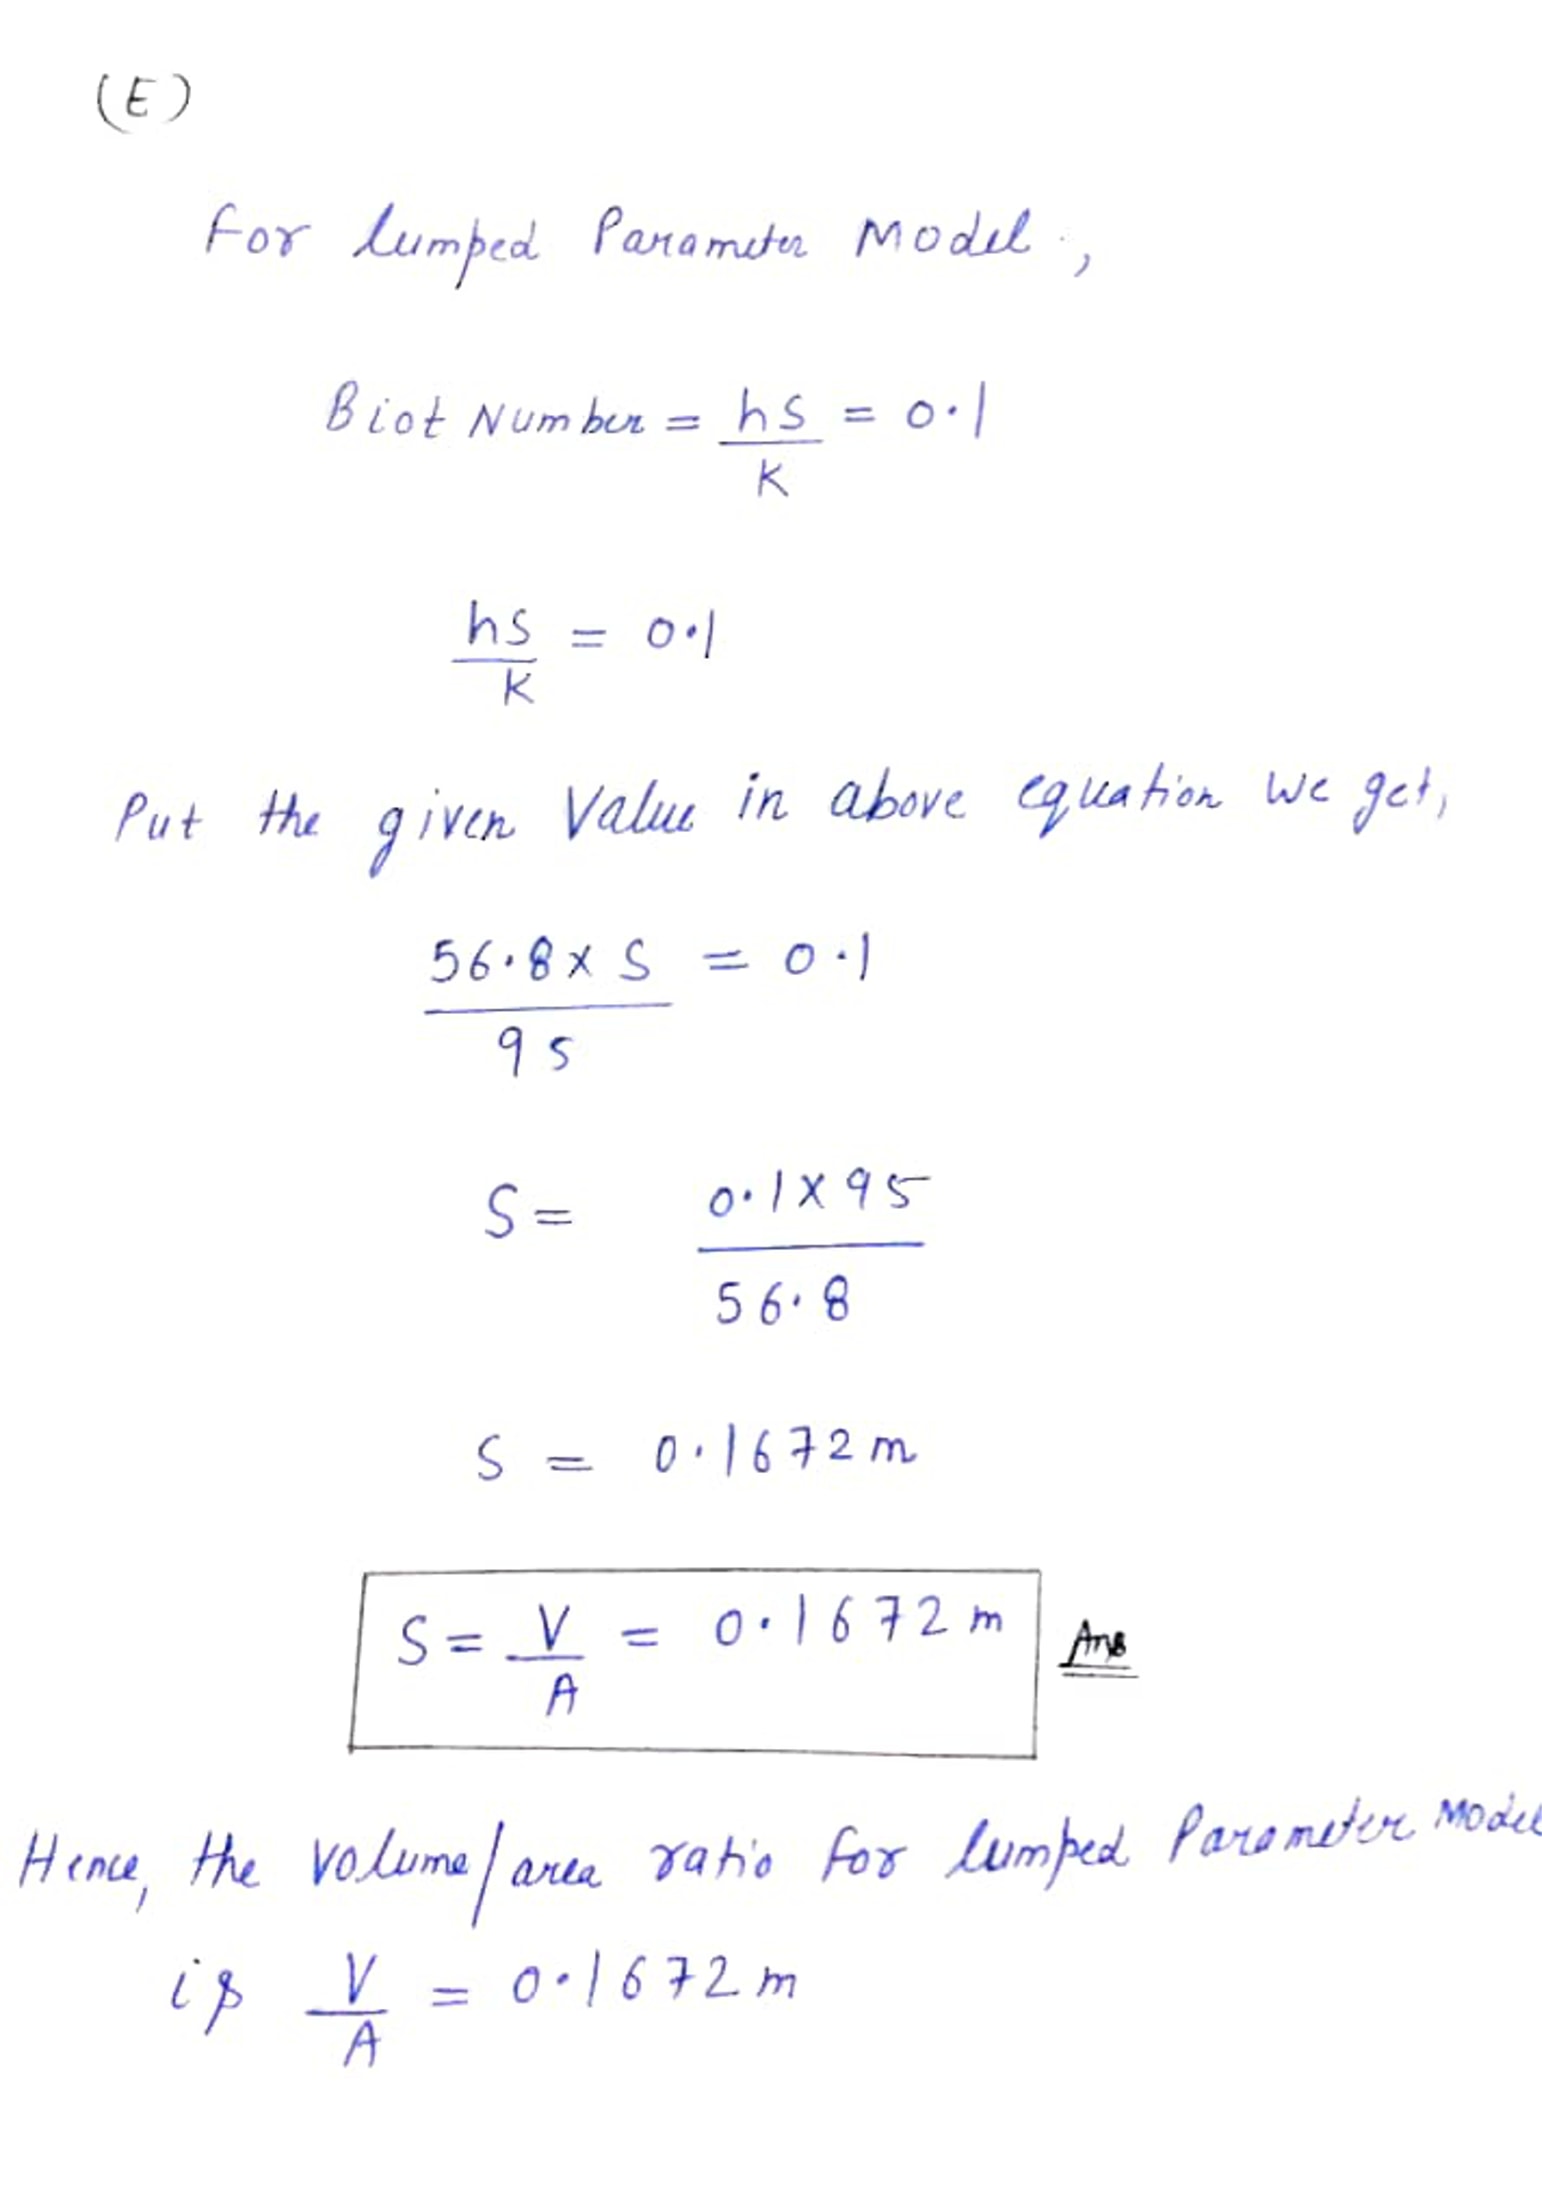 (E)
For lumped Parameter Model,
Biot Number = hS/K = 0.1
hS/K = 0.1
Put the given Value in above equation we get,
56.8 x S / 95 = 0.1
S = 0.1 x 95 / 56.8
S = 0.1672 m
S = V/A = 0.1672 m Ans
Hence, the volume/area ratio for lumped Parameter Model
is V/A = 0.1672 m